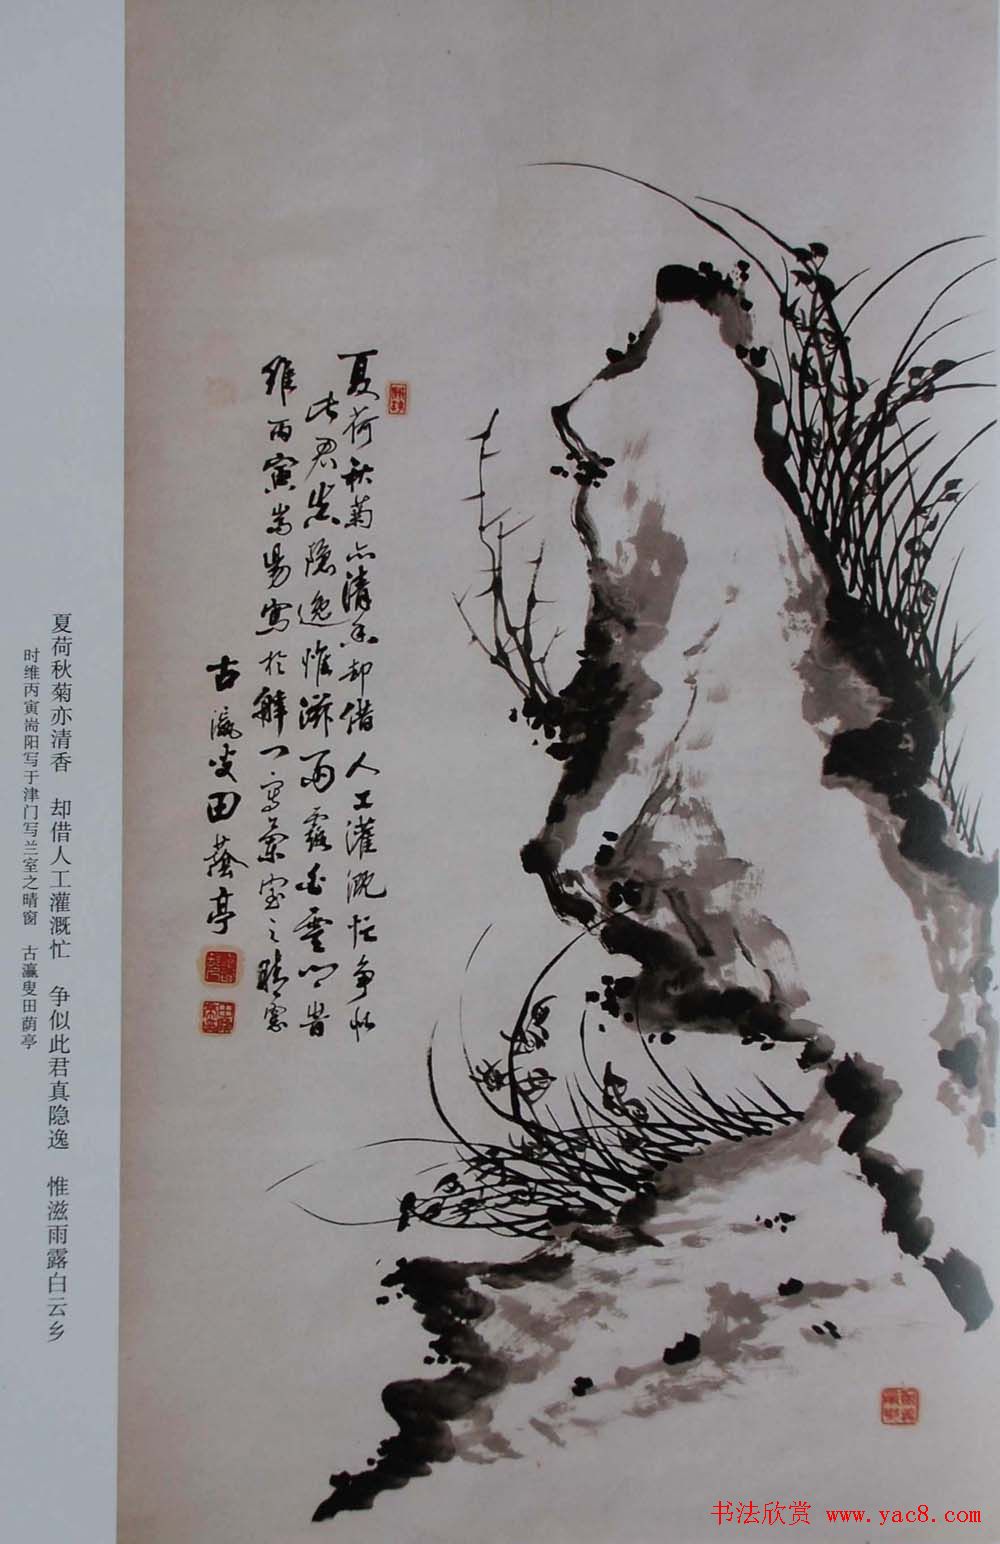 夏荷秋菊亦清香却借人工灌溉忙争似
此君真隱逸惟滋雨露白雲乡旹
維丙寅耑易寫於津门寫蘭室之晴窗
古瀛叟田蔭亭
夏荷秋菊亦清香 却借人工灌溉忙 争似此君真隐逸 惟滋雨露白云乡
时维丙寅耑阳写于津门写兰室之晴窗 古瀛叟田荫亭
书法欣赏 www.yac8.com